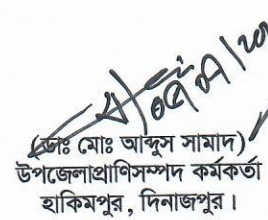 (ডাঃ মোঃ আব্দুস সামাদ)
উপজেলাপ্রাণিসম্পদ কর্মকর্তা
হাকিমপুর, দিনাজপুর।